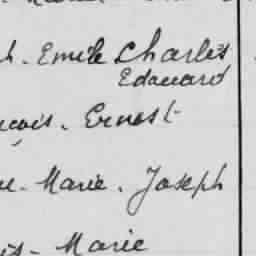 h. Emile Charles
Edouard
çois. Ernest
e. Marie. Joseph
is. Marie